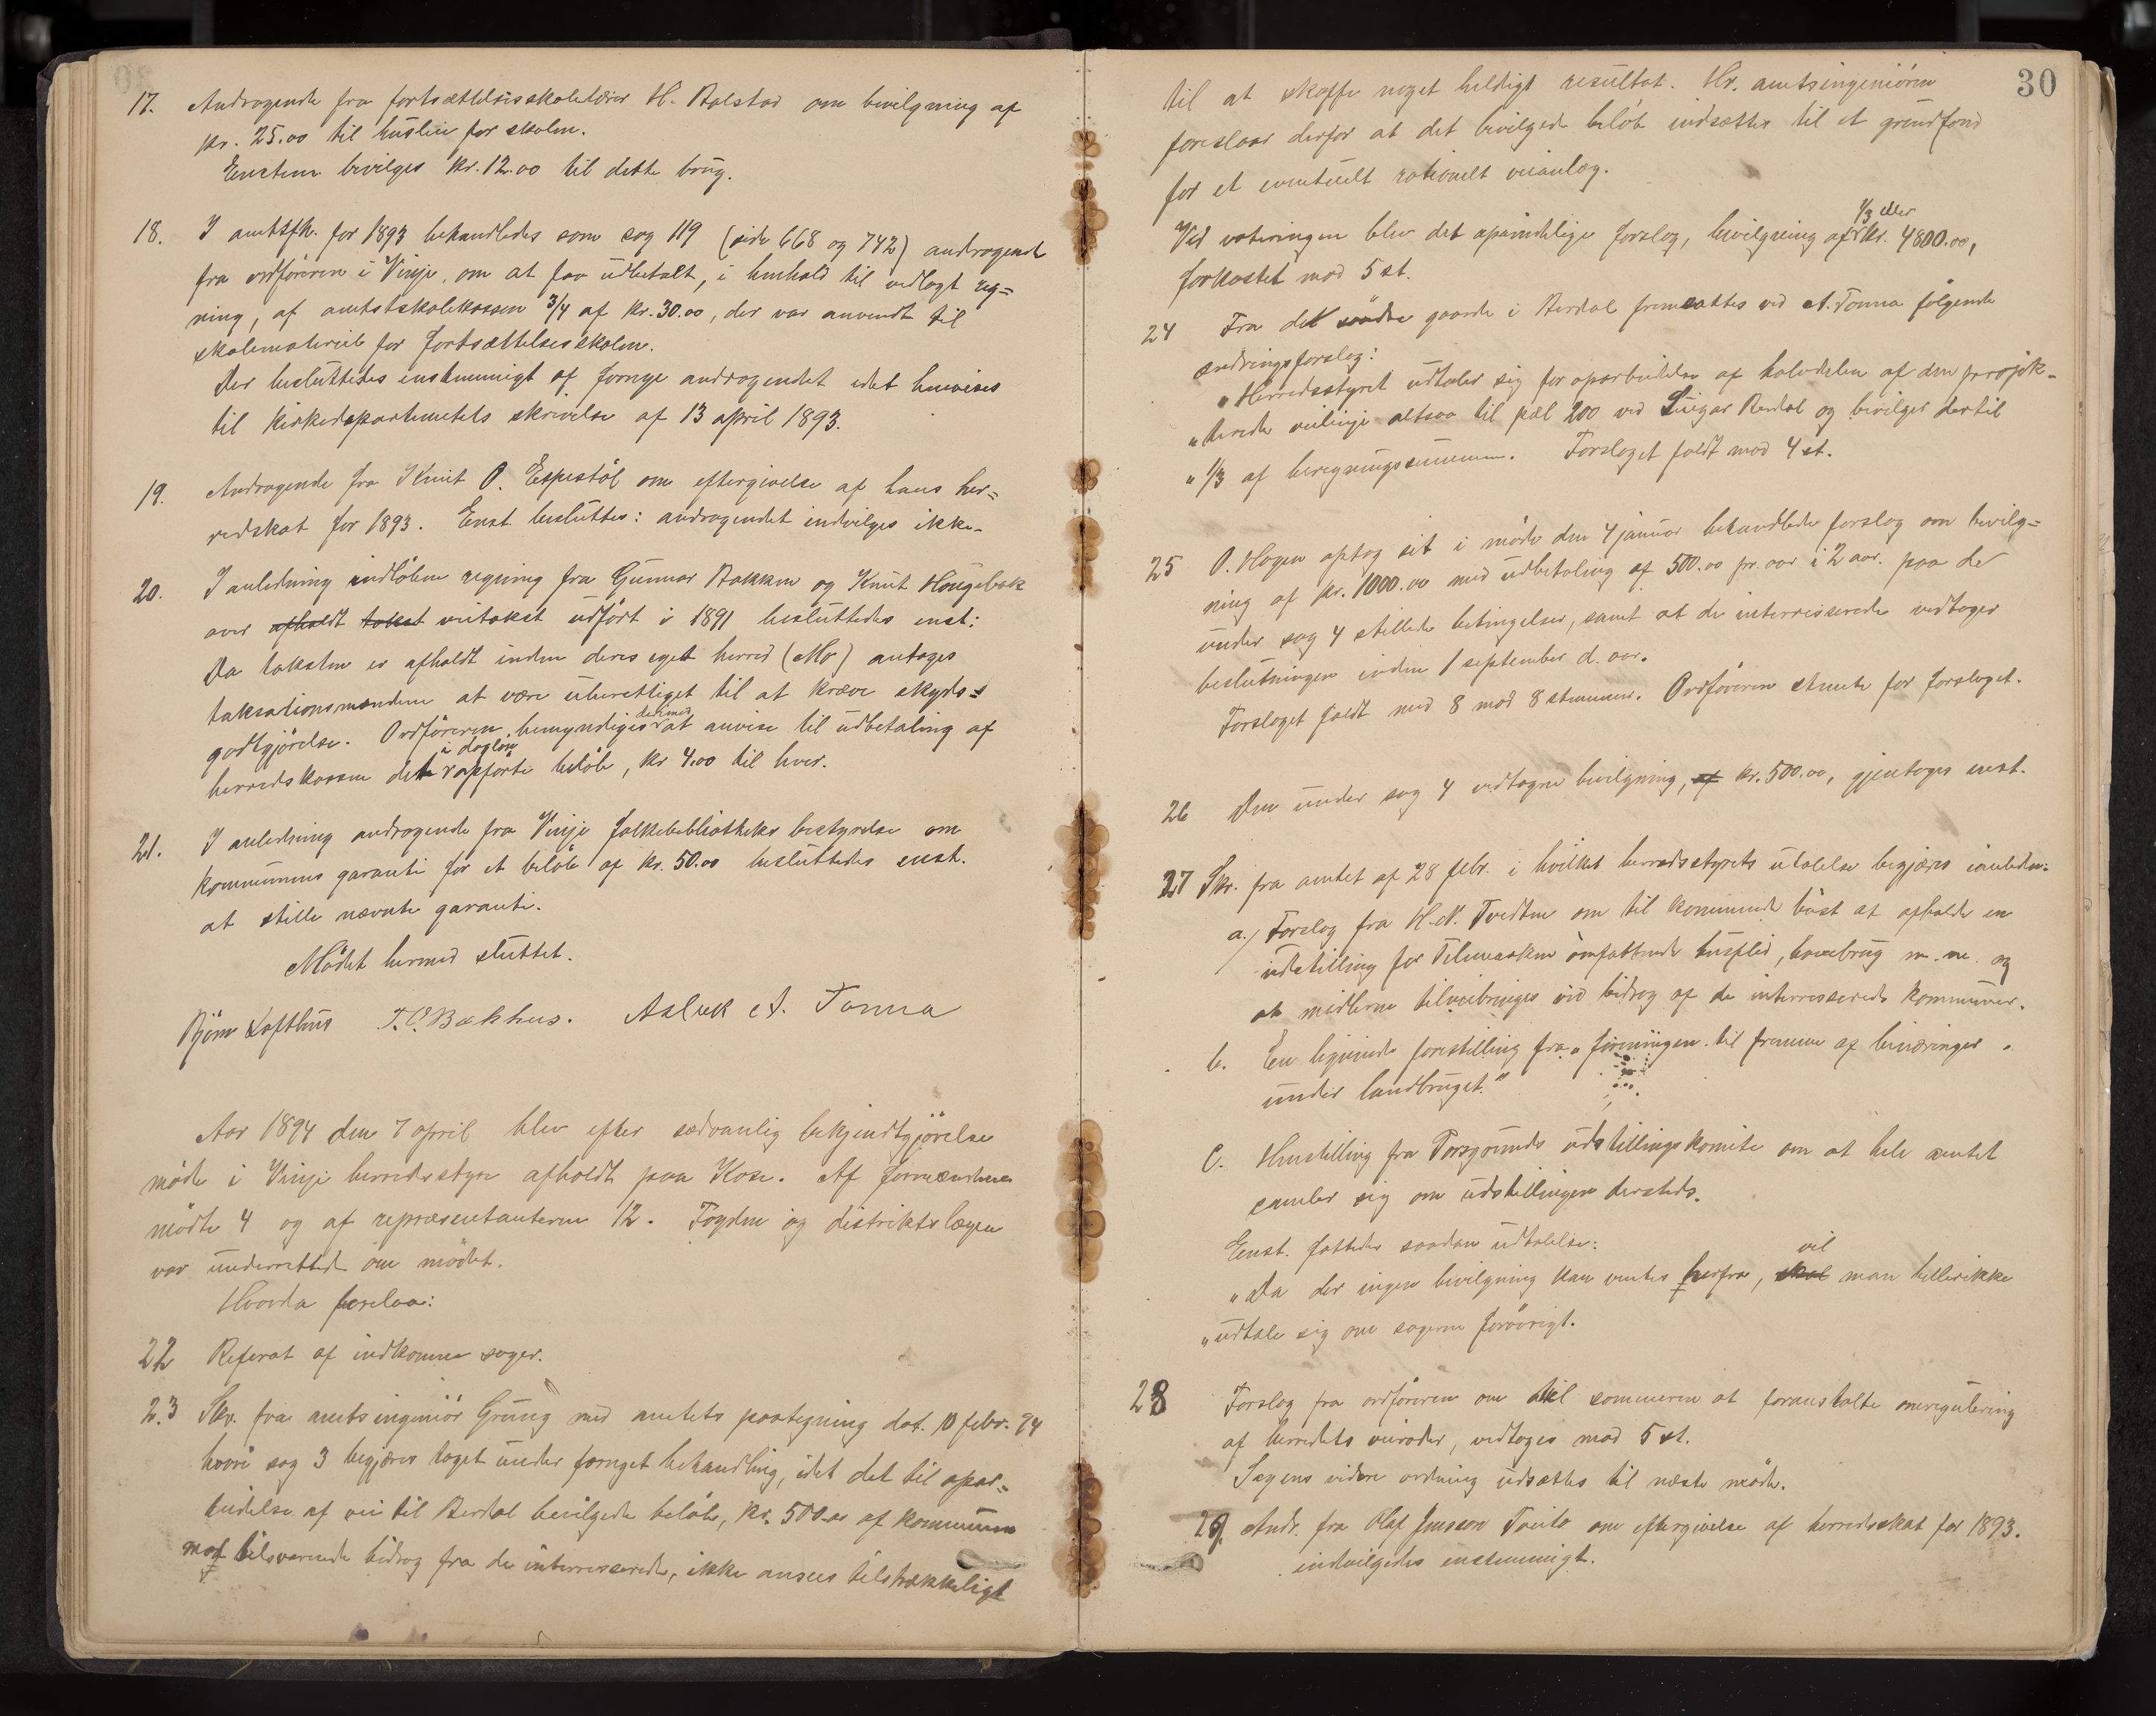 17. Andragende fra fortsættelsesskolelærer H. Bolstad om bevilgning af
kr. 25.00 til husleie for skolen.
Enstem. bevilges kr. 12.00 til dette brug.
18. I amtsfh. for 1893 behandledes som sag 119 (side 668 og 742) andragende
fra ordføreren i Vinje, om at faa udbetalt, i henhold til vedlagt reg=
ning, af amtsskolekassen 3/4 af kr. 30.00, der var anvendt til
skolemateriel for fortsættelsesskolen.
Der besluttedes enstemmigt at fornye andragendet idet henvises
til kirkedepartementets skrivelse af 13 april 1893.
19. Andragende fra Knut O. Espestøl om eftergivelse af hans her=
redskat for 1893. Enst. besluttes: andragendet indvilges ikke.
20. I anledning indløben regning fra Gunnar Bakken og Knut Hougebak
over afholdt takst veitakst udført i 1891 besluttedes enst:
Da taksten er afholdt inden deres eget herred (Mo) antages
taksationsmændene at være uberettiget til at kræve skyds=
godtgjørelse. Ordføreren bemyndiges derimod at anvise til udbetaling af
herredskassen det i dagløn opførte beløb, kr 4.00 til hver.
21. I anledning andragende fra Vinje folkebibliotheks bestyrelse om
kommunens garanti for et beløb af kr. 50.00 besluttedes enst.
at stille nævnte garanti.
Mødet hermed sluttet.
Bjørn Lofthus T. O. Bakhus. Aslak A. Tonna
Aar 1894 den 7 april blev efter sædvanlig bekjendtgjørelse
møde i Vinje herredsstyre afholdt paa Kose. Af formændene
mødte 4 og af repræsentanterne 12. Fogden og distriktslægen
var underrettede om mødet.
Hvorda forelaa:
22 Referat af indkomne sager.
23 Skr. fra amtsingeniør Grung med amtets paategning dat. 10 febr. 94
hvori sag 3 begjæres taget under fornyet behandling, idet det til opar=
beidelse af vei til Berdal bevilgede beløb, kr. 500.00 af kommunen
mod tilsvarende bidrag fra de interresserede, ikke ansees tilstrækkeligt
30
til at skaffe noget heldigt resultat. Hr. amtsingeniøren
foreslaar derfor at det bevilgede beløb indsættes til et grundfond
for et eventuelt rationelt veianlæg.
Ved voteringen blev det oprindelige forslag, bevilgning af 1/3 eller kr. 4800.00,
forkastet mod 5 st.
24 Fra de søndre gaarde i Berdal fremsattes ved A. Tonna følgende
ændringsforslag:
"Herredsstyret udtaler sig for oparbeidelse af halvdelen af den projek-
"terede veilinje altsaa til pæl 200 ved Berdal og bevilger dertil
"1/3 af beregningssummen. Forslaget faldt mod 4 st.
25 O. Hagen optog sit i møde den 4 januar behandlede forslag om bevilg=
ning af kr. 1000.00 med udbetaling af 500.00 pr. aar i 2 aar. paa de
under sag 4 stillede betingelser, samt at de interresserede vedtager
beslutningen inden 1 september d. aar.
Forslaget faldt med 8 mod 8 stemmer. Ordføreren stemte for forslaget.
26 Den under sag 4 vedtagne bevilgning, af kr. 500.00, gjentoges enst.
27 Skr. fra amtet af 28 febr. i hvilket herredsstyrets utalelse begjæres ianledn:
a.) Forslag fra H. N. Tvedten om til kommende høst at afholde en
udstilling for Telemarken omfattende husflid, havebrug m. m. og
at midlerne tilveiebringes ved bidrag af de interresserede kommuner.
b. En lignende forestilling fra "foreningen til fremme af binæringer
under landbruget."
c. Henstilling fra Porsgrunds udstillingskomite om at hele amtet
samler sig om udstillingen dersteds.
Enst. fattedes saadan udtalelse:
"Da der ingen bevilgning kan ventes herfra, skal vil man heller ikke
"udtale sig om sagerne forøvrigt.
28 Forslag fra ordføreren om til sommeren at foranstalte omregulering
af herredets veiroder, vedtoges mod 5 st.
Sagens videre ordning udsættes til næste møde.
29 Andr. fra Olaf Jensson Tveito om eftergivelse af herredsskat for 1893.
indvilgedes enstemmigt.